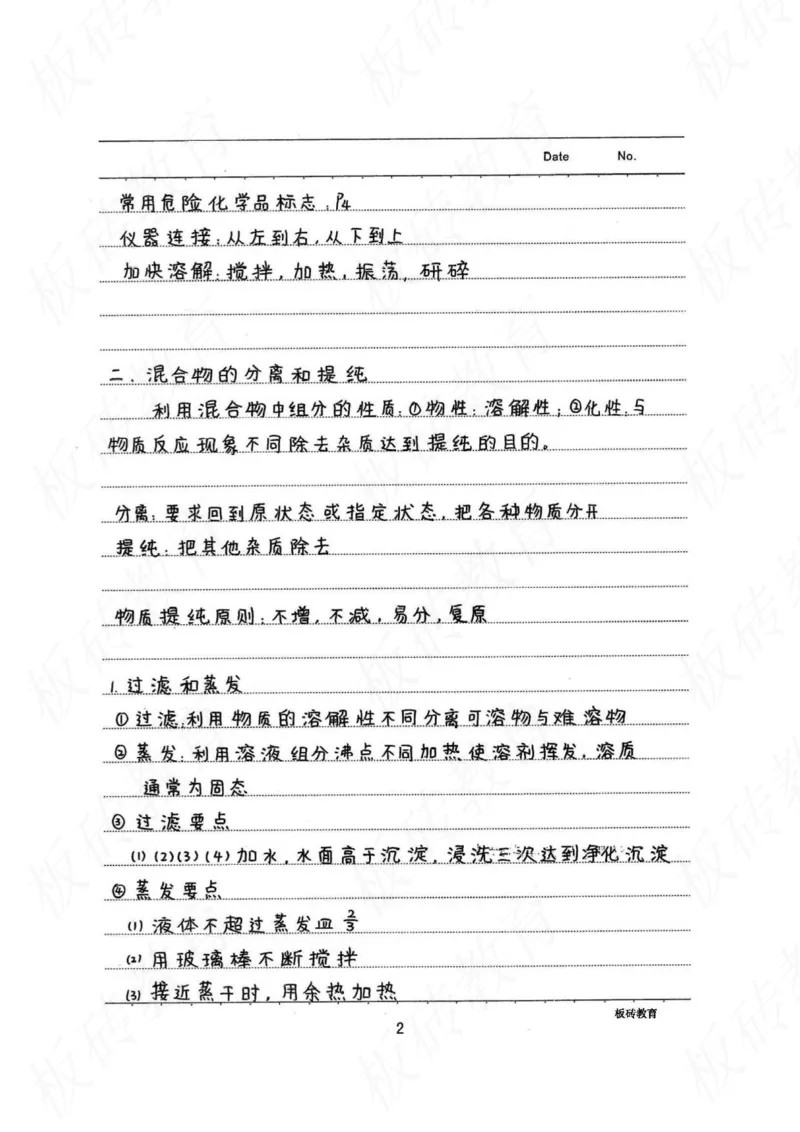 Date No.
常用危险化学品标志:P4
仪器连接:从左到右,从下到上
加快溶解:搅拌,加热,振荡,研碎
二.混合物的分离和提纯
利用混合物中组分的性质:①物性:溶解性;②化性:与
物质反应现象不同除去杂质达到提纯的目的。
分离:要求回到原状态或指定状态,把各种物质分开
提纯:把其他杂质除去
物质提纯原则:不增,不减,易分,复原
1.过滤和蒸发
①过滤:利用物质的溶解性不同分离可溶物与难溶物
②蒸发:利用溶液组分沸点不同加热使溶剂挥发,溶质
通常为固态
③过滤要点
(1)(2)(3)(4)加水,水面高于沉淀,浸洗三次达到净化沉淀
④蒸发要点
(1)液体不超过蒸发皿2/3
(2)用玻璃棒不断搅拌
(3)接近蒸干时,用余热加热
板砖教育
2